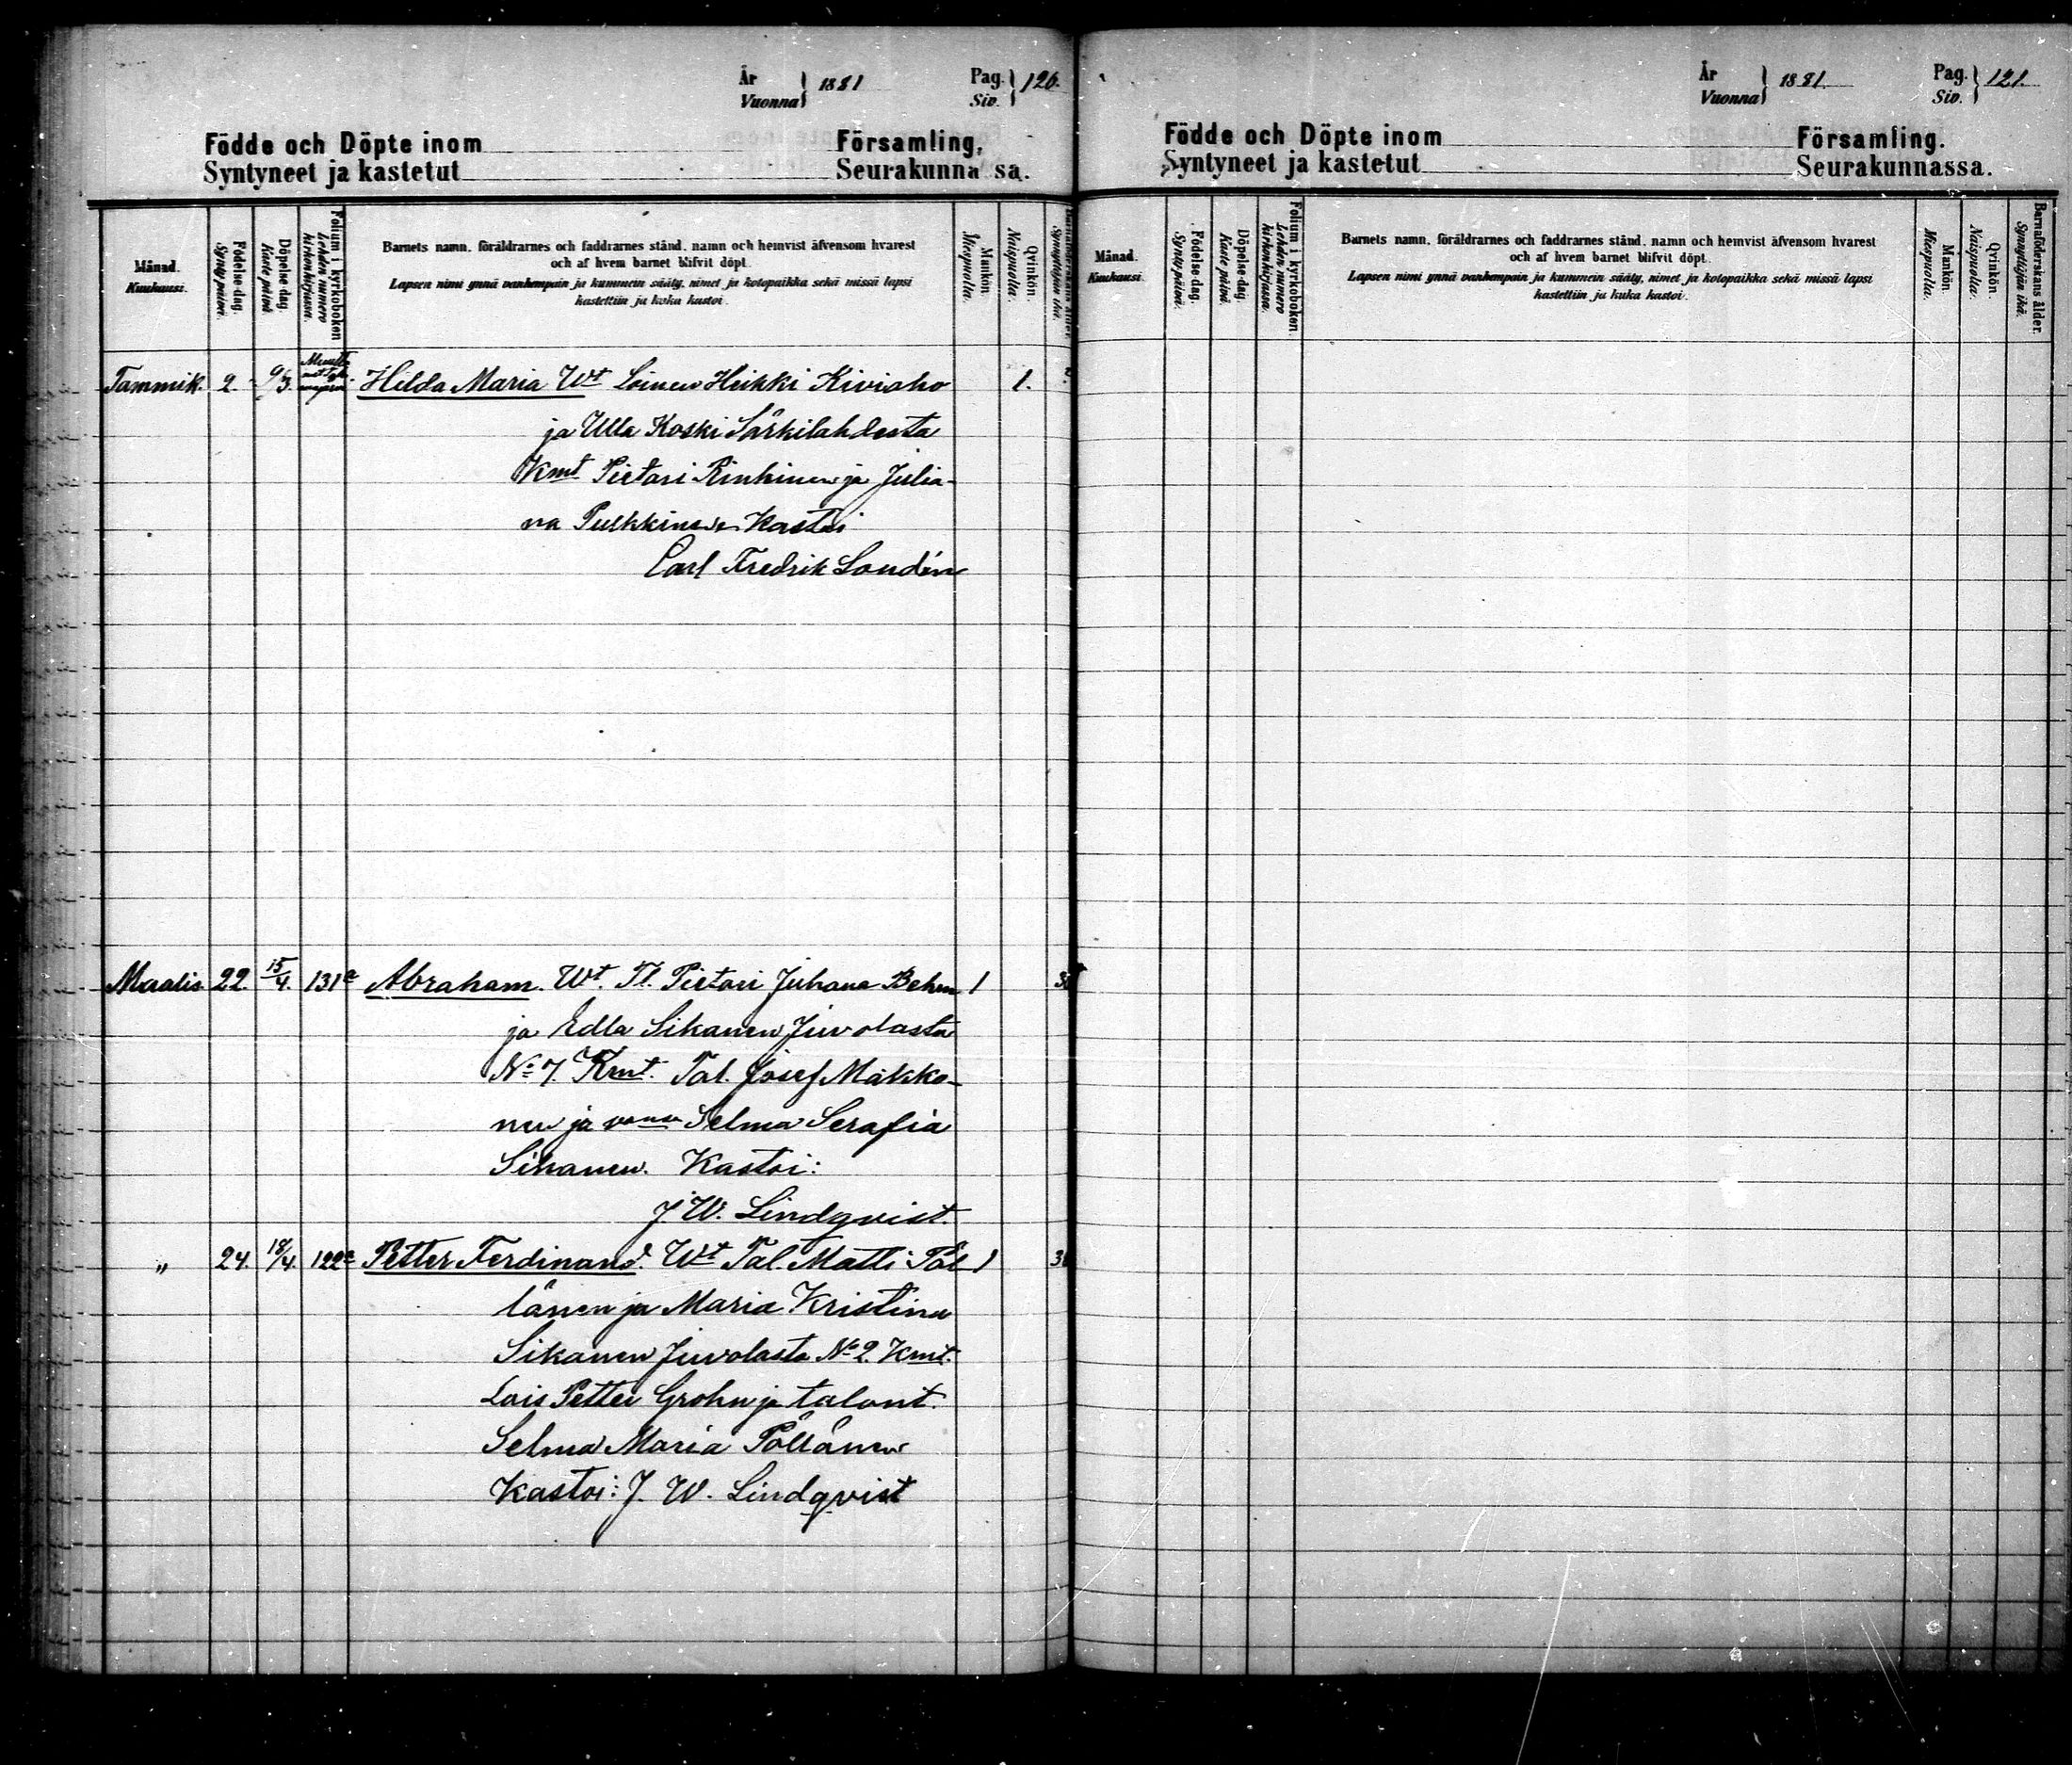 År
Vuonna } 1881
Pag.
Siv. } 120.
Födde och Döpte inom Församling,
Syntyneet ja kastetut Seurakunna sa.
Månad.
Kuukausi.
Födelse-dag.
Syntypäivä.
Döpelse-dag.
Kastepäivä.
Folium i kyrkoboken
Lehden numero
kirkonkirjassa.
Barnets namn, föräldrarnes och faddrarnes stånd, namn och hemvist äfvensom hvarest
och af hvem barnet blifvit döpt.
Lapsen nimi ynnä vanhempain ja kummein sääty, nimet ja kotopaikka sekä missä lapsi
kastettiin ja kuka kastoi.
Mankön.
Miespuolia.
Qvinkön.
Naispuolia.
Tammik. 2. Hilda Maria Wt Loinen Heikki Kiviaho 1.
ja Ulla Koski Särkilahdesta
Kmt Pietari ja Julia-
na Pulkkinen Kastoi
Carl Fredrik Londén
Maalis. 22. 15/4. 131a Abraham. Wt. Tl. Pietari Juhana Behm 1
ja Edla Sikanen Juvolasta
No 7. Kmt. Tal. Josef Makko-
nen ja Selma Serafia
Sikanen. Kastoi:
J. W. Lindqvist.
„ 24. 18/4. 122a Petter Ferdinand. Wt Tal. Matti Pöl 1
länen ja Maria Kristina
Sikanen Juvolasta No 2. Kmt.
Lois Petter Grohn ja talont.
Selma Maria Pöllänen
Kastoi: J. W. Lindqvist
År
Vuonna } 1881.
Pag.
Siv. } 121.
Födde och Döpte inom Församling.
Syntyneet ja kastetut Seurakunnassa.
Månad.
Kuukausi.
Födelse-dag.
Syntypäivä.
Döpelse-dag.
Kastepäivä.
Folium i kyrkoboken.
Lehden numero
kirkonkirjassa.
Barnets namn, föräldrarnes och faddrarnes stånd, namn och hemvist äfvensom hvarest
och af hvem barnet blifvit döpt.
Lapsen nimi ynnä vanhempain ja kummein sääty, nimet ja kotopaikka sekä missä lapsi
kastettiin ja kuka kastoi.
Mankön.
Miespuolia.
Qvinkön.
Naispuolia.
Barnaföderskans ålder.
Synnyttäjän ikä.